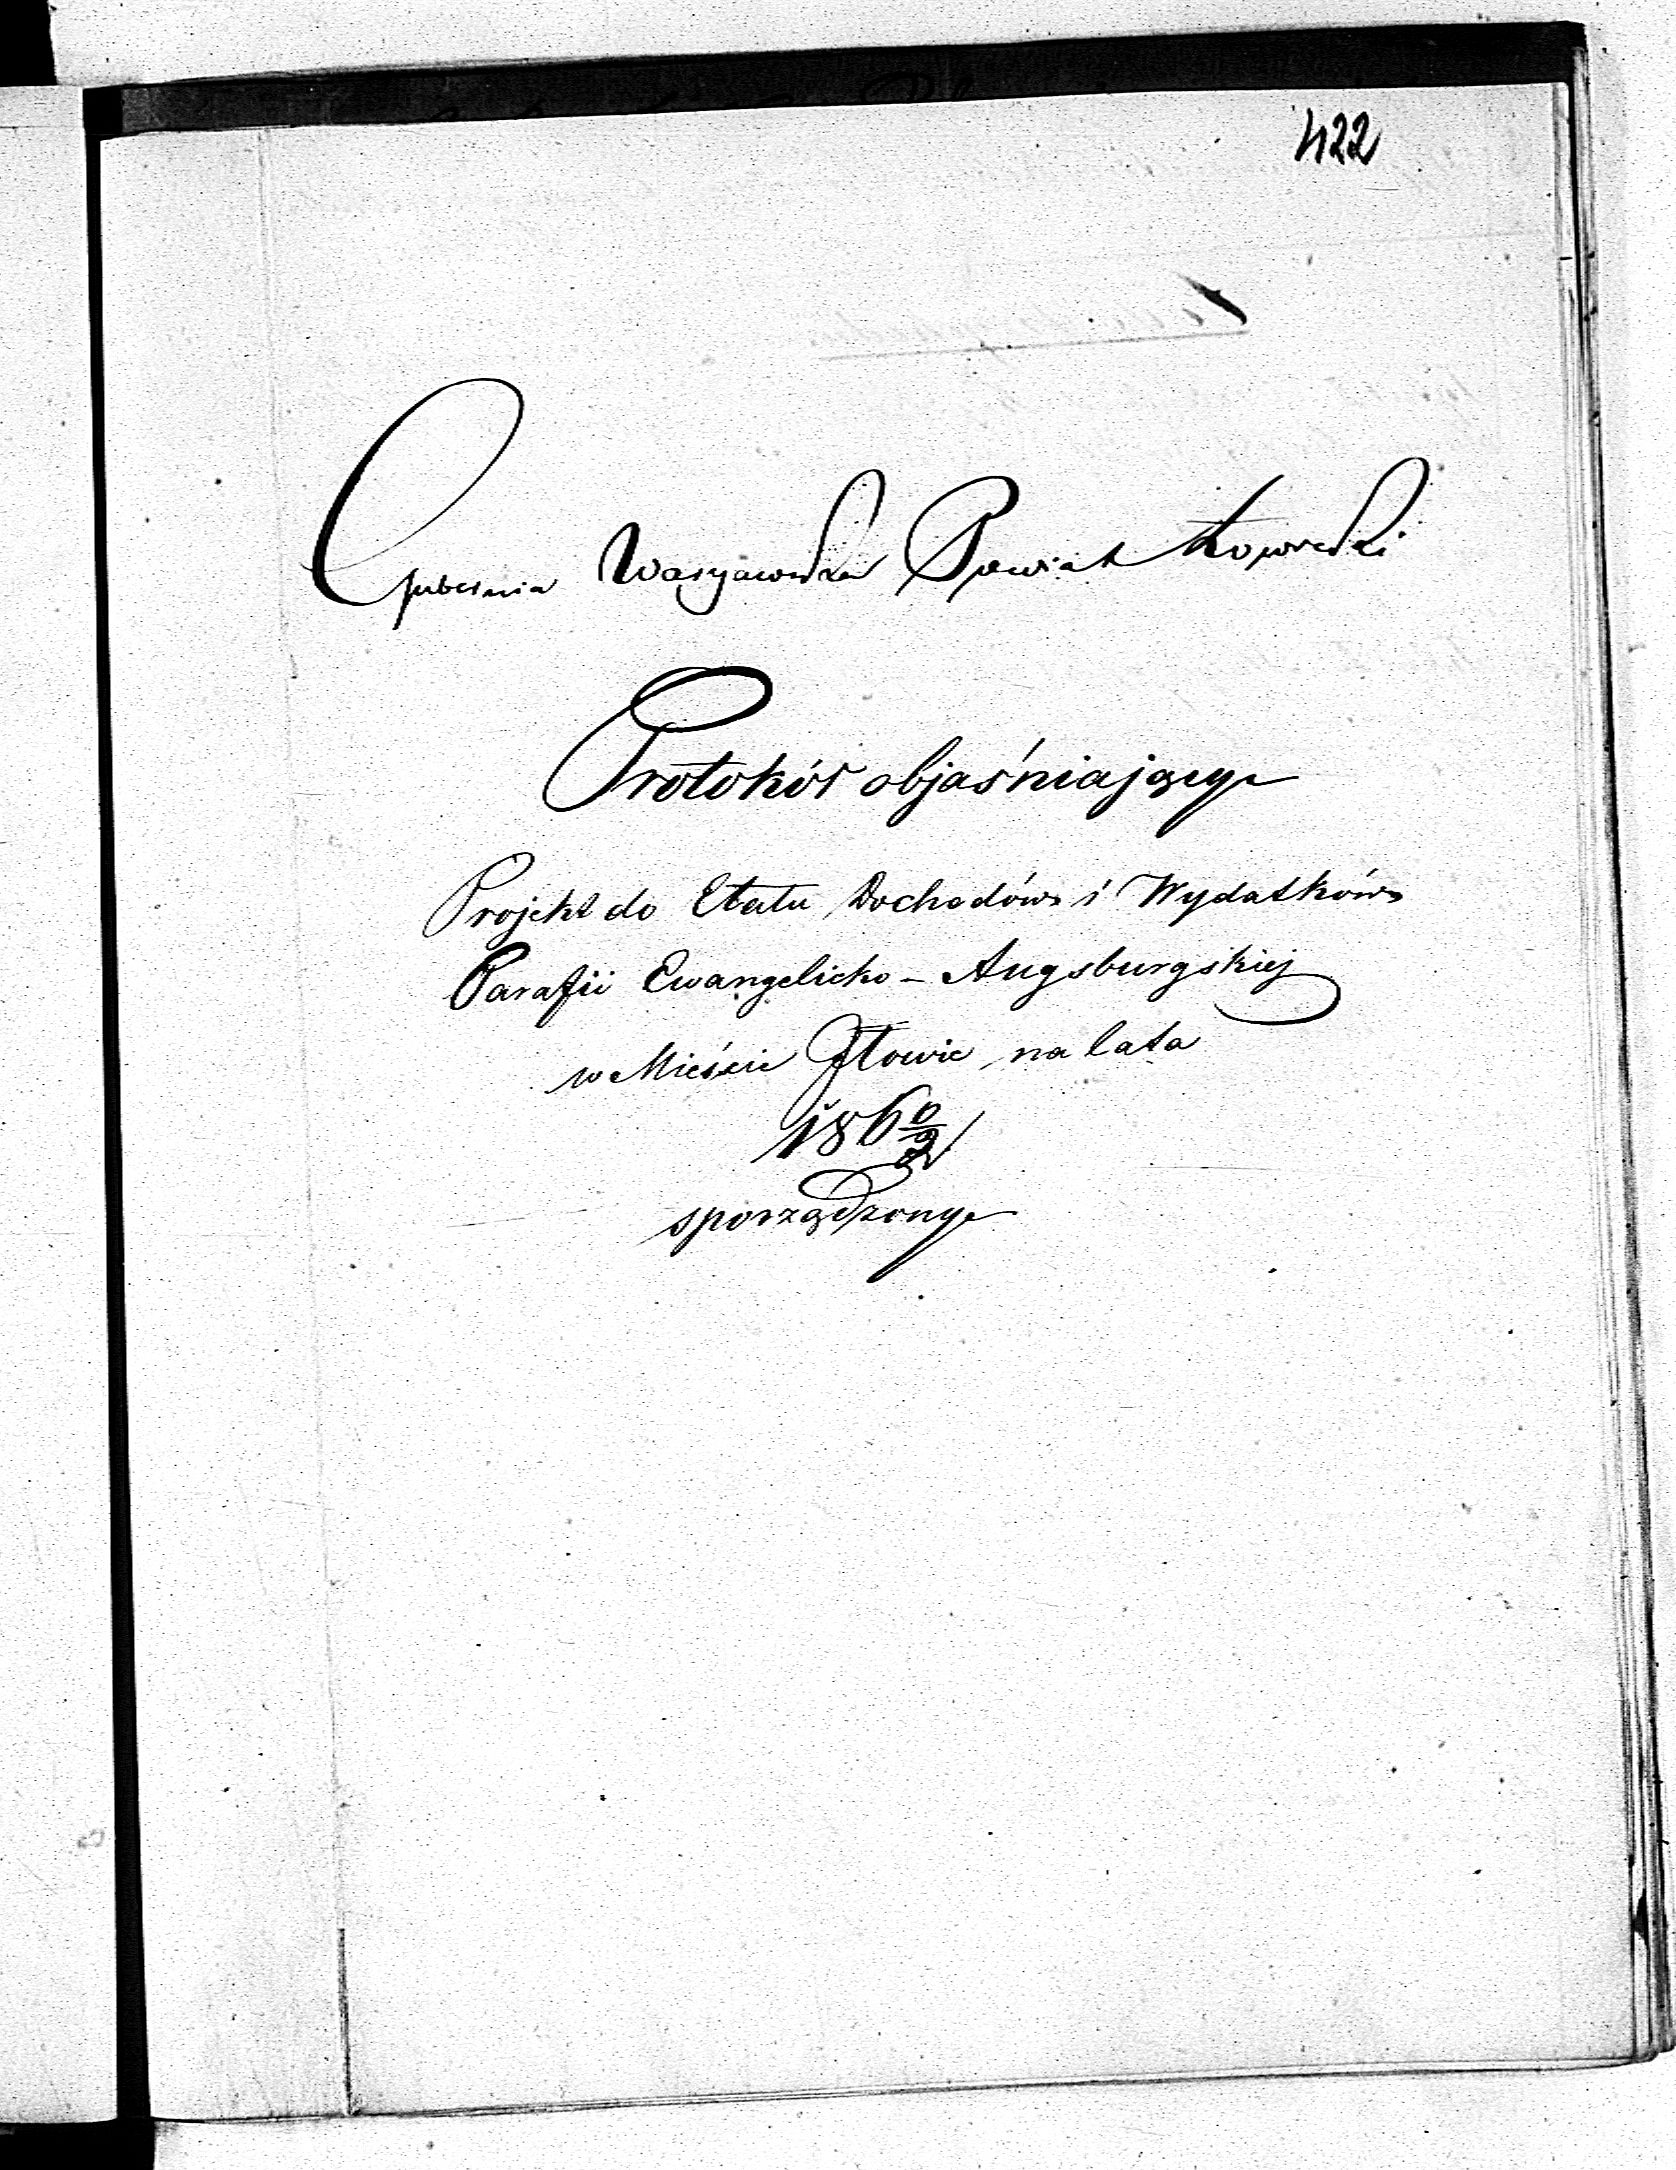 422
Gubernia Warszawska Powiat Łowicki
Protokół objaśniający
Projekt do Etatu Dochodów i Wydatków
Parafii Ewangelicko - Augsburgskiej
w Mieście Iłowie na lata
186 0/2
sporządzony